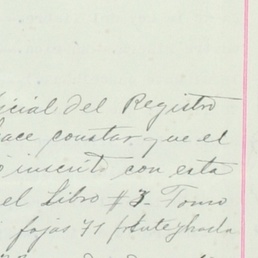 icial del Registro
ace constar que el
inscrito con esta
el Libro # 3- Tomo
fojas 71 frente y hasta